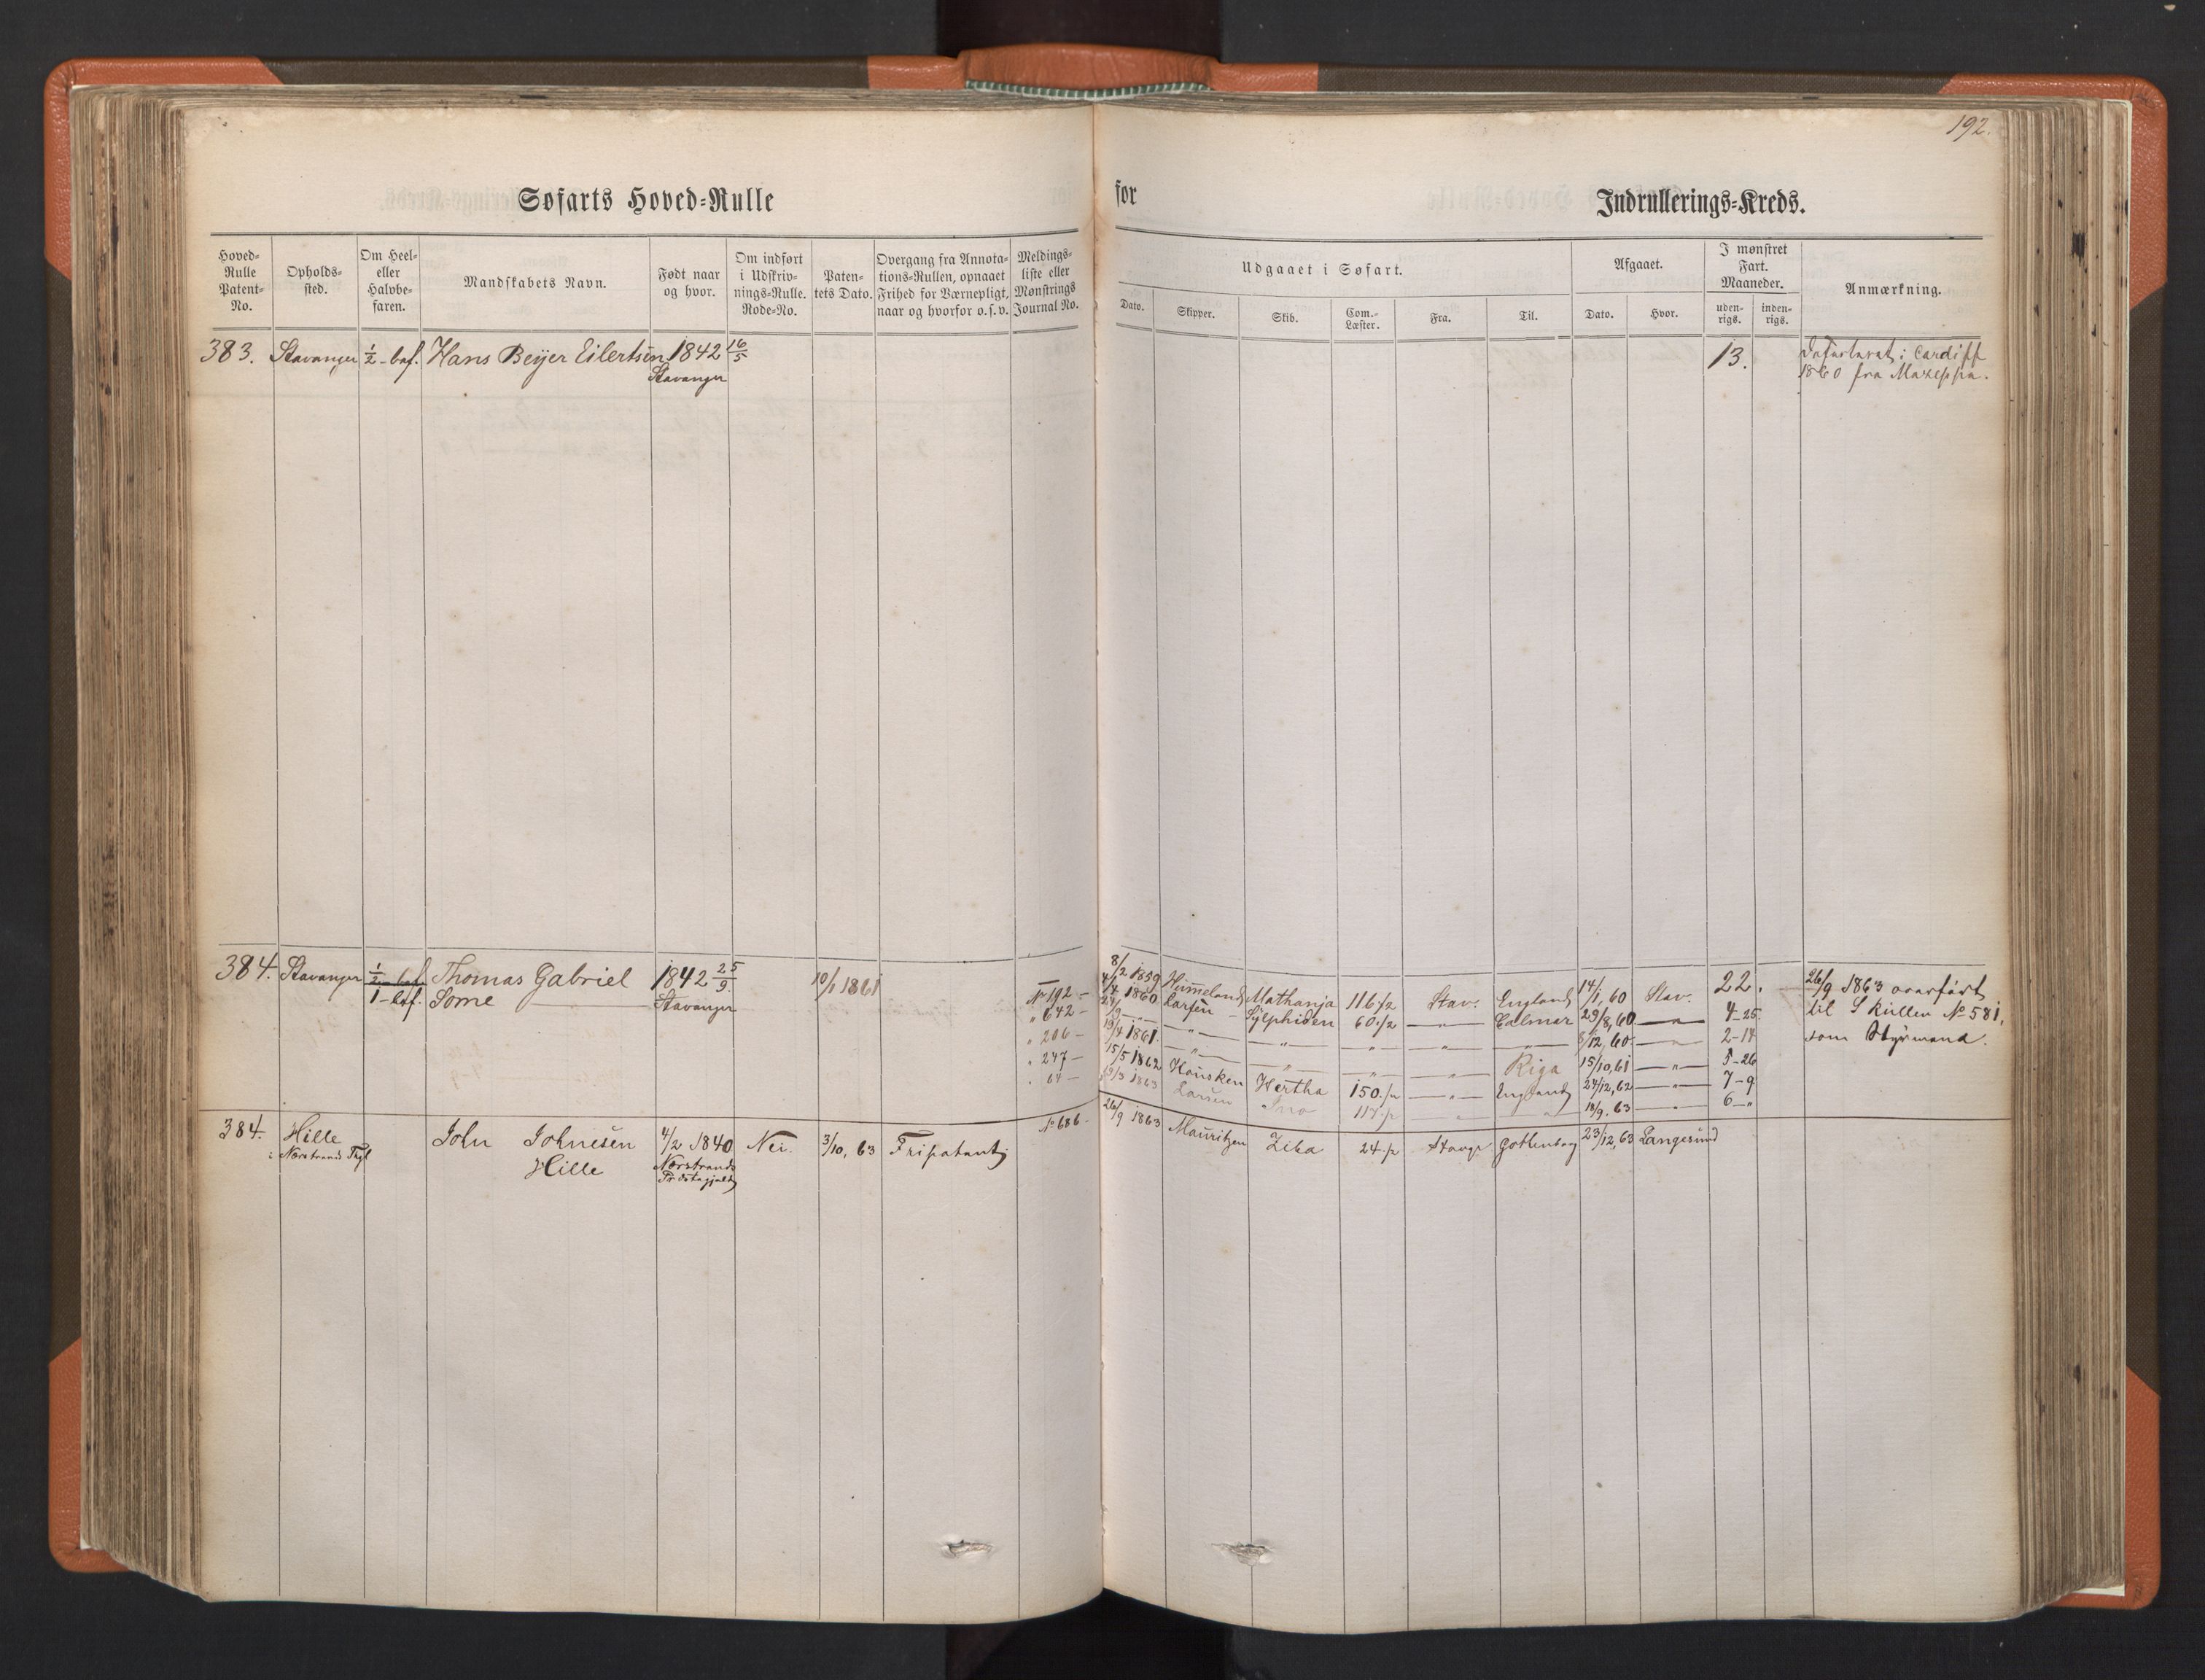 192.
Søfarts Hoved=Rulle for Indrullerings=Kreds.
Hoved=Rulle Patent=No.
Opholds=sted.
Om Heel= eller Halvbe=faren.
Mandskabets Navn.
Født naar og hvor.
Om indført i Udskriv=nings=Rulle. Rode=No.
Paten=tets Dato.
Overgang fra Annota=tions=Rullen, opnaaet Frihed for Værnepligt, naar og hvorfor o.s.v.
Meldings=liste eller Mønstrings Journal No.
Udgaaet i Søfart.
Dato. Skipper. Skib. Com.=Læster. Fra. Til.
Afgaaet.
Dato. Hvor.
I mønstret Fart. Maaneder.
uden=rigs. inden=rigs.
Anmærkning.
383. Stavanger 1/2 - bef. Hans Beyer Eilertsen 1842 16/5 13. i Cardiff
Stavanger 1860 fra Mazeppa.
384. Stavanger 1/2 - bef. Thomas Gabriel 1842 25/9 10/1 1861
1 - bef. Sørne Stavanger
No 192 - 8/2 1859 Hummeland Mathanja 116 1/2 Stav. England 14/1, 60 Stav. 22. 26/9 1863 overført
" 642 - 4/4 1860 Larsen Sylphiden 60 1/2 — " — Calmar 29/8, 60 — " — 4-25 til S Rullen No 581,
" 206 - — " — — " — " " " /12, 60 — " — 2-14 som Styrmand.
" 247 - /4 1861 — " — — " — " " Riga 15/10, 61 — " — 5-26
" 64 - 15/5 1862 Housken Hertha 150 — " — England 24/12, 62 — " — 7-9
/3 1863 Larsen Ino " " 18/9. 63 — " — 6 - "
384. Hille John Johnesen 4/2 1840 Nei. 3/10, 63 Fripatent No 686 - 26/9 1863 Mauritzen Zeba 24 Stavgr Gottenborg 23/12, 63 Langesund
i Nerstrands Pgl Hille Nerstrands
Præstegjeld